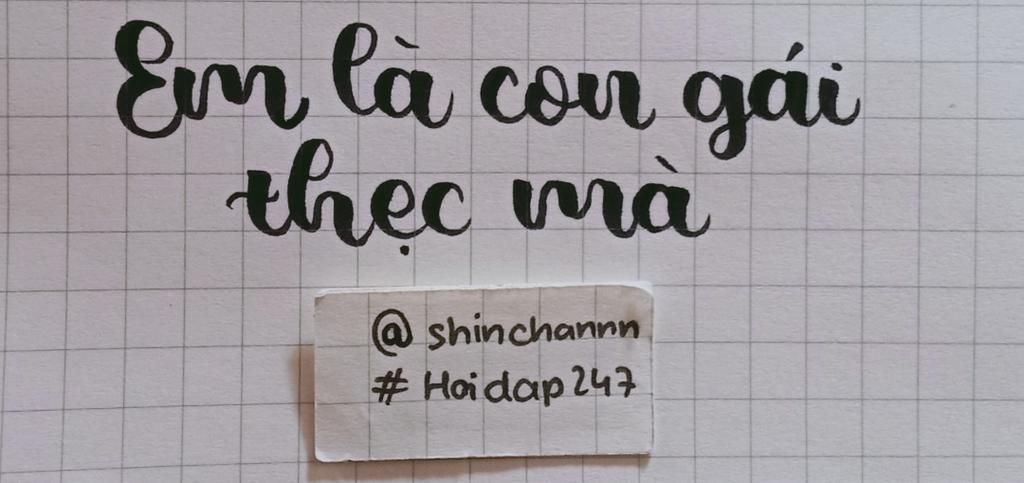 Em là con gái
thẹc mà
@ shinchannn
# Hoidap247